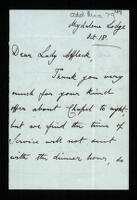 Magdalene Lodge
Oct. 18.
Dear Lady Affleck
Thank you very
much for your kind
offer about Chapel to night,
but we find the time of
Service will not suit
with the dinner hour, so